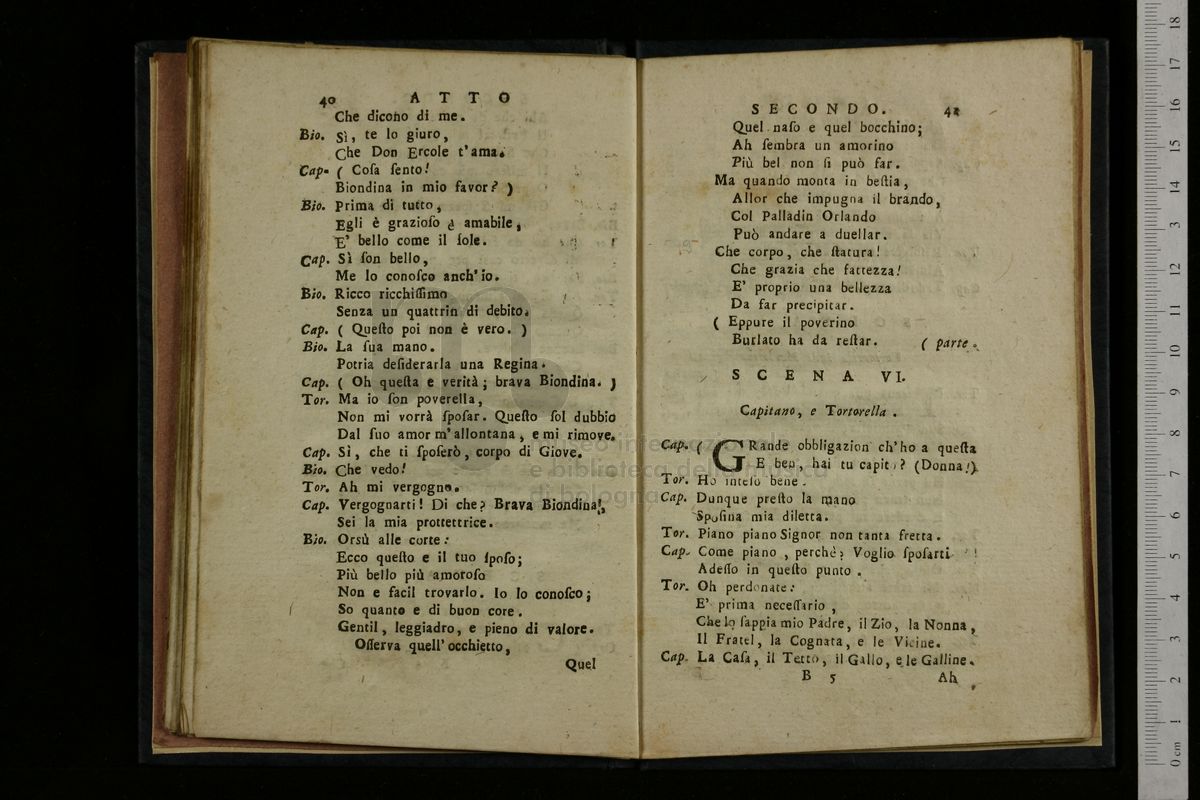 40 ATTO
Che dicono di me.
Bio. Sì, te lo giuro,
Che Don Ercole t'ama.
Cap. ( Coſa ſento!
Biondina in mio favor? )
Bio. Prima di tutto,
Egli è grazioſo e amabile,
E' bello come il ſole.
Cap. Sì ſon bello,
Me lo conoſco anch' io.
Bio. Ricco ricchiſſimo
Senza un quattrin di debito.
Cap. ( Queſto poi non è vero. )
Bio. La ſua mano.
Potria deſiderarla una Regina.
Cap. ( Oh queſta e verità; brava Biondina. )
Tor. Ma io ſon poverella,
Non mi vorrà ſpoſar. Queſto ſol dubbio
Dal ſuo amor m'allontana, e mi rimove.
Cap. Sì, che ti ſpoſerò, corpo di Giove.
Bio. Che vedo!
Tor. Ah mi vergogno.
Cap. Vergognarti! Di che? Brava Biondina!,
Sei la mia prottettrice.
Bio. Orsù alle corte:
Ecco queſto e il tuo ſpoſo;
Più bello più amoroſo
Non e facil trovarlo. Io lo conoſco;
So quanto e di buon core.
Gentil, leggiadro, e pieno di valore.
Oſſerva quell' occhietto,
Quel
SECONDO. 41
Quel naſo e quel bocchino;
Ah ſembra un amorino
Più bel non ſi può far.
Ma quando monta in beſtia,
Allor che impugna il brando,
Col Palladin Orlando
Può andare a duellar.
Che corpo, che ſtatura!
Che grazia che fattezza!
E' proprio una bellezza
Da far precipitar.
( Eppure il poverino
Burlato ha da reſtar. ( parte.
SCENA VI.
Capitano, e Tortorella.
Cap. ( GRande obbligazion ch'ho a queſta
E ben, hai tu capito? (Donna!)
Tor. Ho inteſo bene.
Cap. Dunque preſto la mano
Spoſina mia diletta.
Tor. Piano piano Signor non tanta fretta.
Cap. Come piano, perchè? Voglio ſpoſarti
Adeſſo in queſto punto.
Tor. Oh perdonate:
E' prima neceſſario,
Che lo ſappia mio Padre, il Zio, la Nonna,
Il Fratel, la Cognata, e le Vicine.
Cap. La Caſa, il Tetto, il Gallo, e le Galline.
B 5 Ah
museo internazionale
e biblioteca della musica
di bologna
0 cm 1 2 3 4 5 6 7 8 9 10 11 12 13 14 15 16 17 18